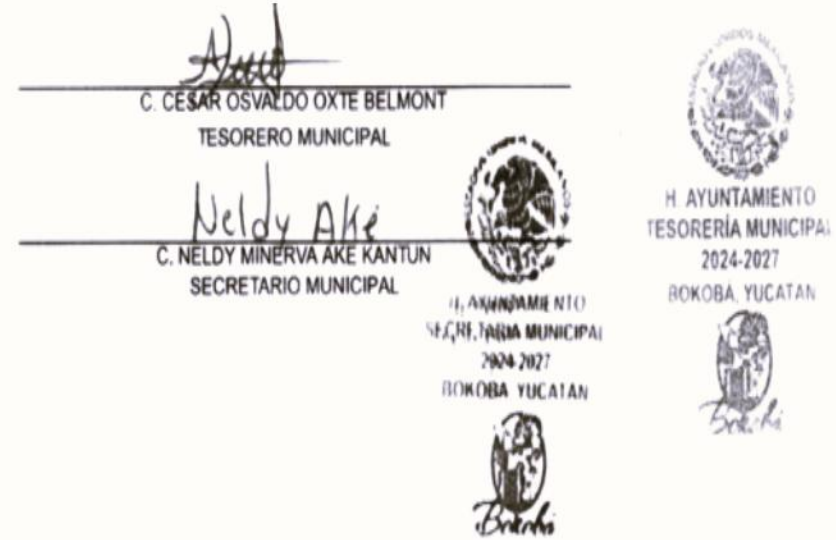 C. CESAR OSVALDO OXTE BELMONT
TESORERO MUNICIPAL
Neldy Aké
C. NELDY MINERVA AKE KANTUN
SECRETARIO MUNICIPAL
H. AYUNTAMIENTO
SECRETARIA MUNICIPAL
2024-2027
BOKOBA YUCATAN
Bokobá
H. AYUNTAMIENTO
TESORERÍA MUNICIPAL
2024-2027
BOKOBA, YUCATAN
Bokobá